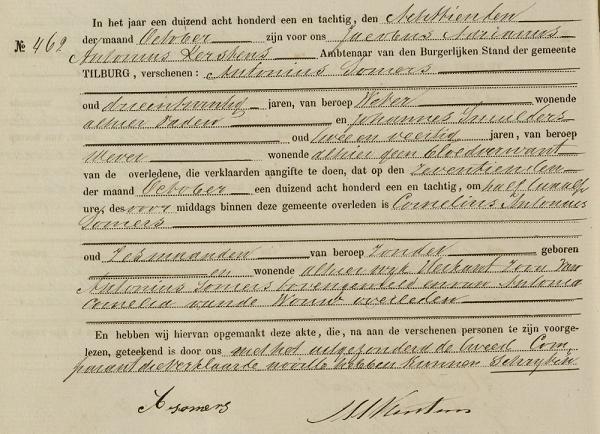 In het jaar een duizend acht honderd een en tachtig, den Achttienden
№ 462 der maand October zijn voor ons Jacobus Marinus
Antonius Kerstens Ambtenaar van den Burgerlijken Stand der gemeente
TILBURG, verschenen: Antonius Somers
oud drieentwintig jaren, van beroep Wever wonende
alhier Vader en Johannes Smulders
oud twee en veertig jaren, van beroep
Wever wonende alhier geen bloedverwant
van de overledene, die verklaarden aangifte te doen, dat op den Zeventienden
der maand October een duizend acht honderd een en tachtig, om half twaalf
ure, des voor middags binnen deze gemeente overleden is Cornelius Antonius
Somers
oud Zes maanden van beroep Zonder geboren
en wonende alhier wijk Zoon van
Antonius Somers en van Antonia
Cornelia van de Wouw overleden
En hebben wij hiervan opgemaakt deze akte, die, na aan de verschenen personen te zijn voorge-
lezen, geteekend is door ons met uitgezonderd de tweede Com-
parant die verklaarde niet te hebben kunnen Schrijven.
A somers